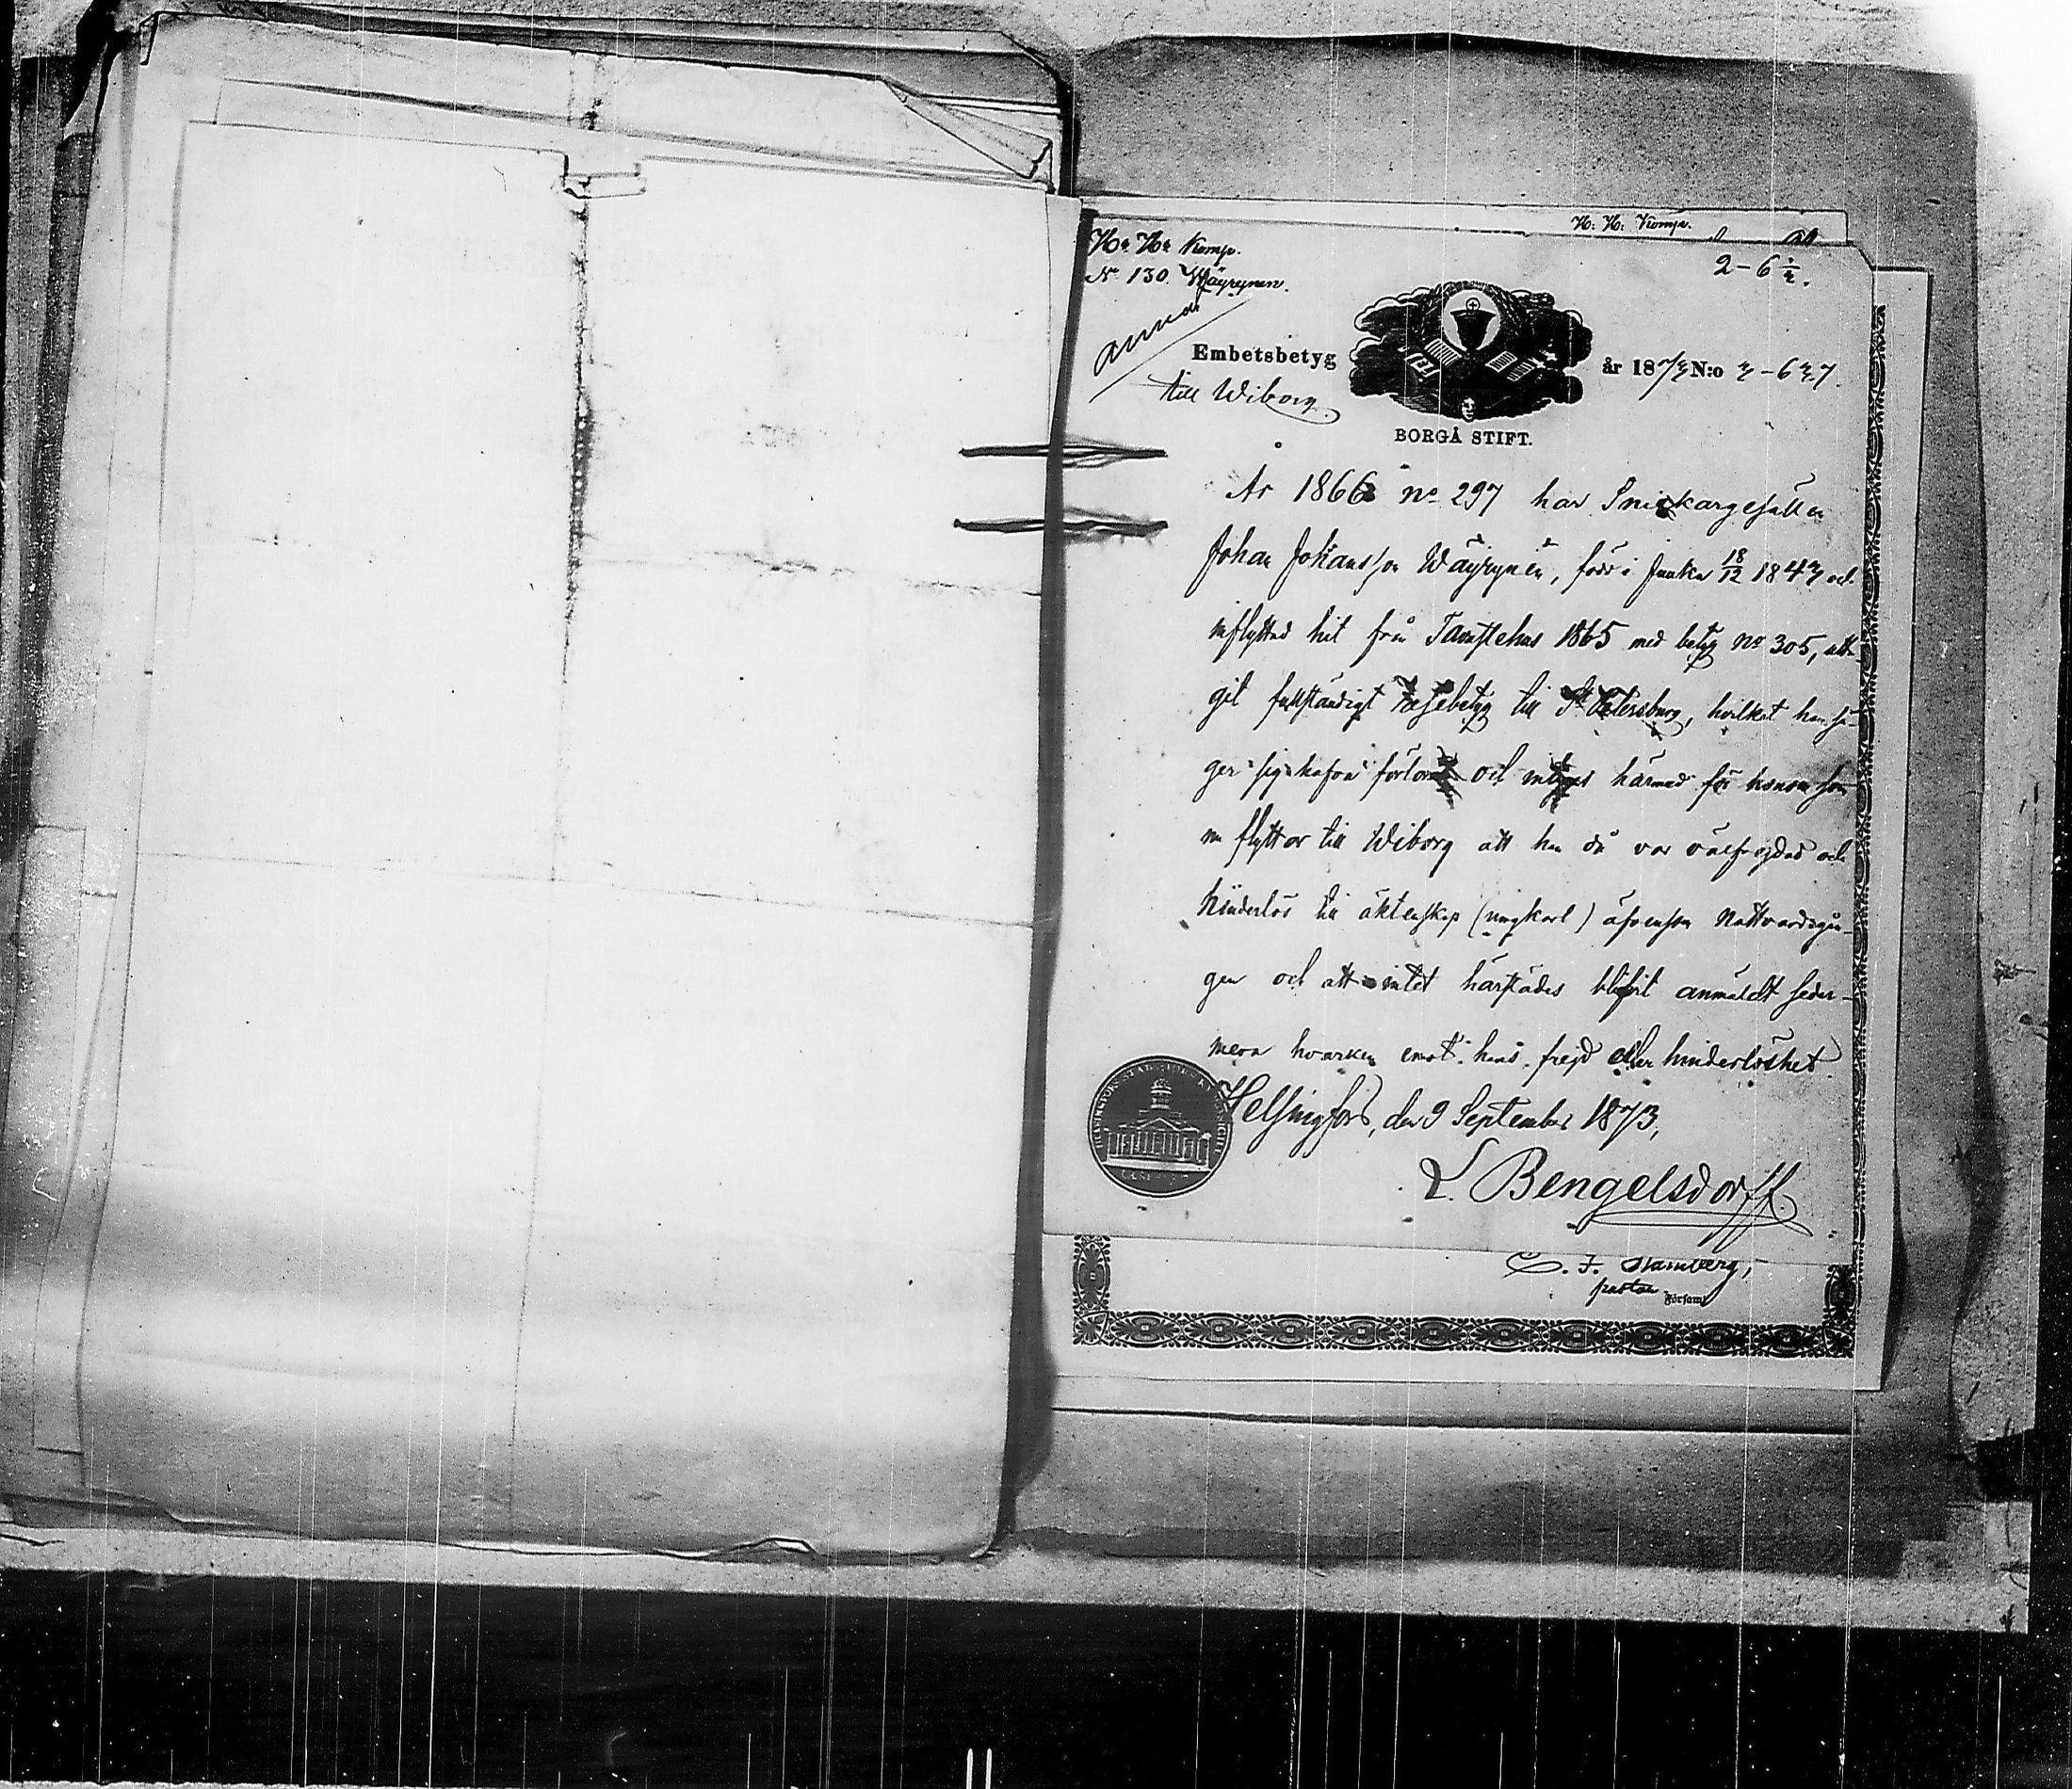 H: H: Komp.
Ha Ha Komp.
No 130. Wäyrynen.
2-6
Embetsbetyg
år 1873 N:o
till Wiborg
BORGÅ STIFT.
År 1866 no 297 har Snickargesällen
Johan Johansson Wäyrynen, född i Juuka 18/12 1843 och
inflyttad hit från Tavastehus 1865 med betyg no 305, utta-
git fullständigt resebetyg till St Petersburg, hvilket han sä-
ger sig hafva förlorat och intygas härmed för honom som
nu flyttar till Wiborg att han då var välfrejdad och
hinderlös till äktenskap (ungkarl) äfvensom Nattvardsgån-
gen och att intet härstädes blifvit anmäldt seder-
mera hvarken emot hans frejd eller hinderlöshet.
Helsingfors, den 9 September 1873,
L. Bengelsdorff.
C. F. Stamberg,
pastor
Församl